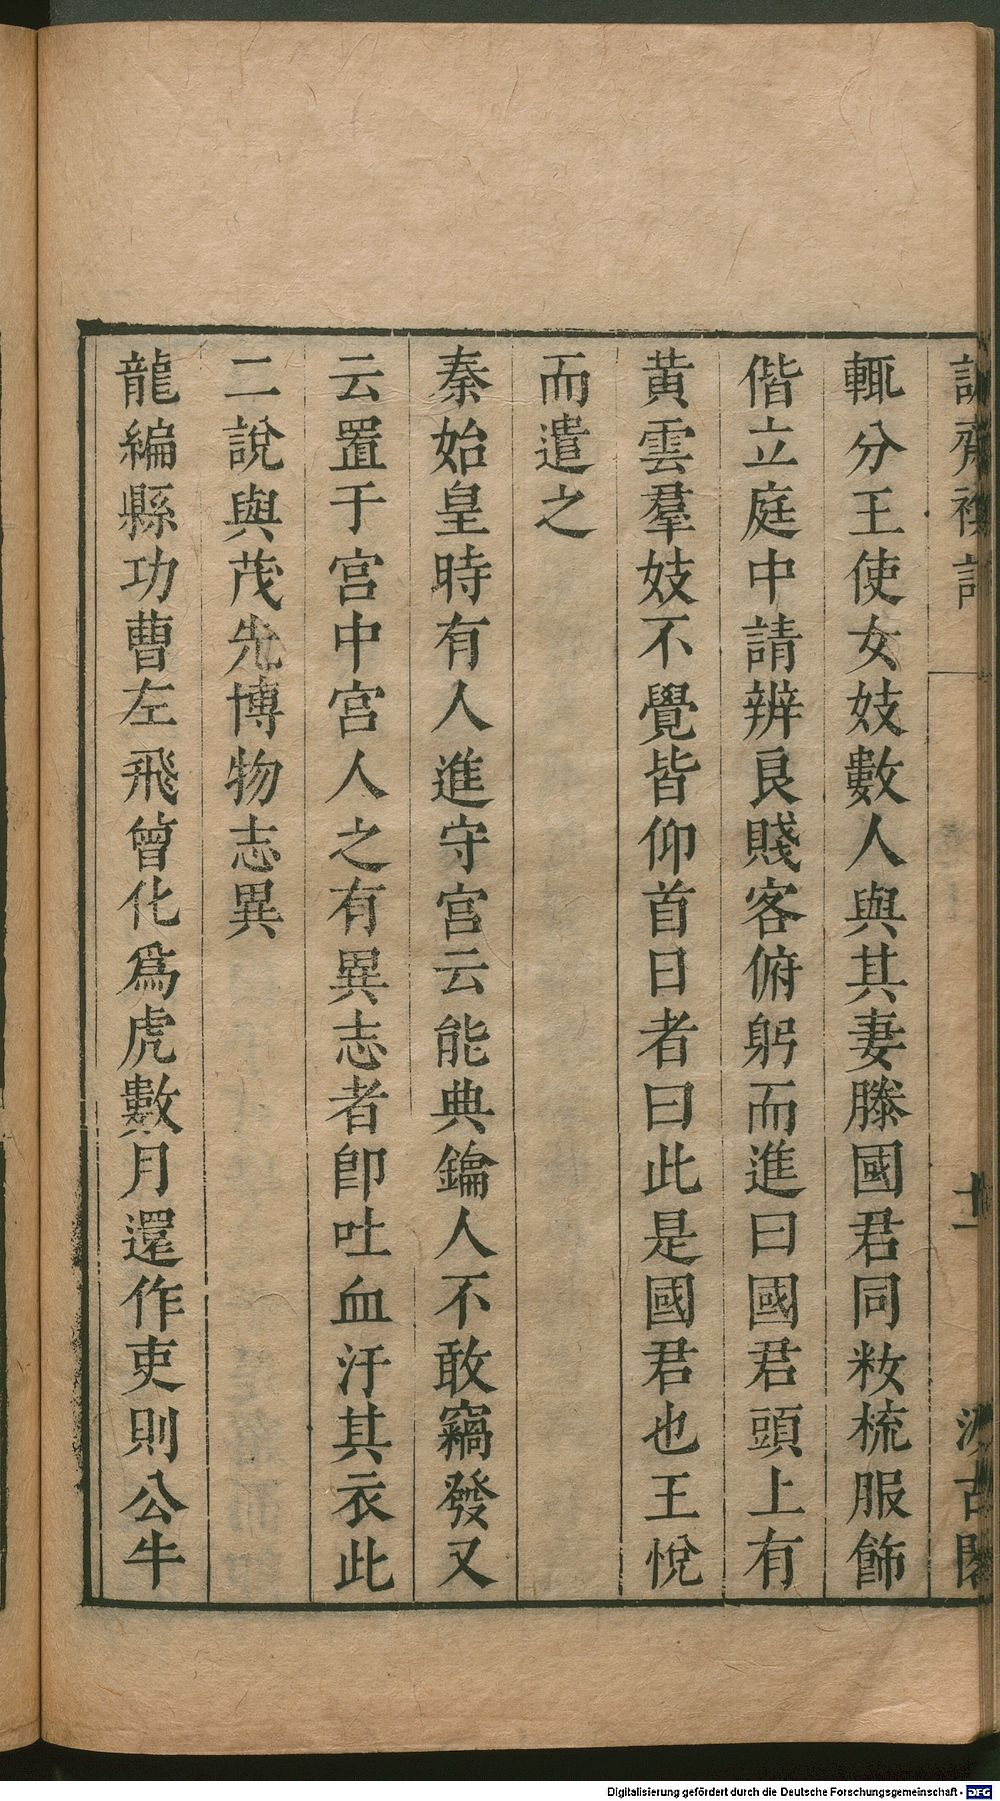 誠齋襍記
十一
汲古閣
輒分王使女妓數人與其妻滕國君同籹梳服飾
偕立庭中請辨良賤客俯躬而進曰國君頭上有
黃雲羣妓不覺皆仰首日者曰此是國君也王悅
而遣之
秦始皇時有人進守宮云能典鑰人不敢竊發又
云置于宮中宮人之有異志者卽吐血汙其衣此
二說與茂先博物志異
龍編縣功曹左飛曾化爲虎數月還作吏則公牛
Digitalisierung gefördert durch die Deutsche Forschungsgemeinschaft - DFG